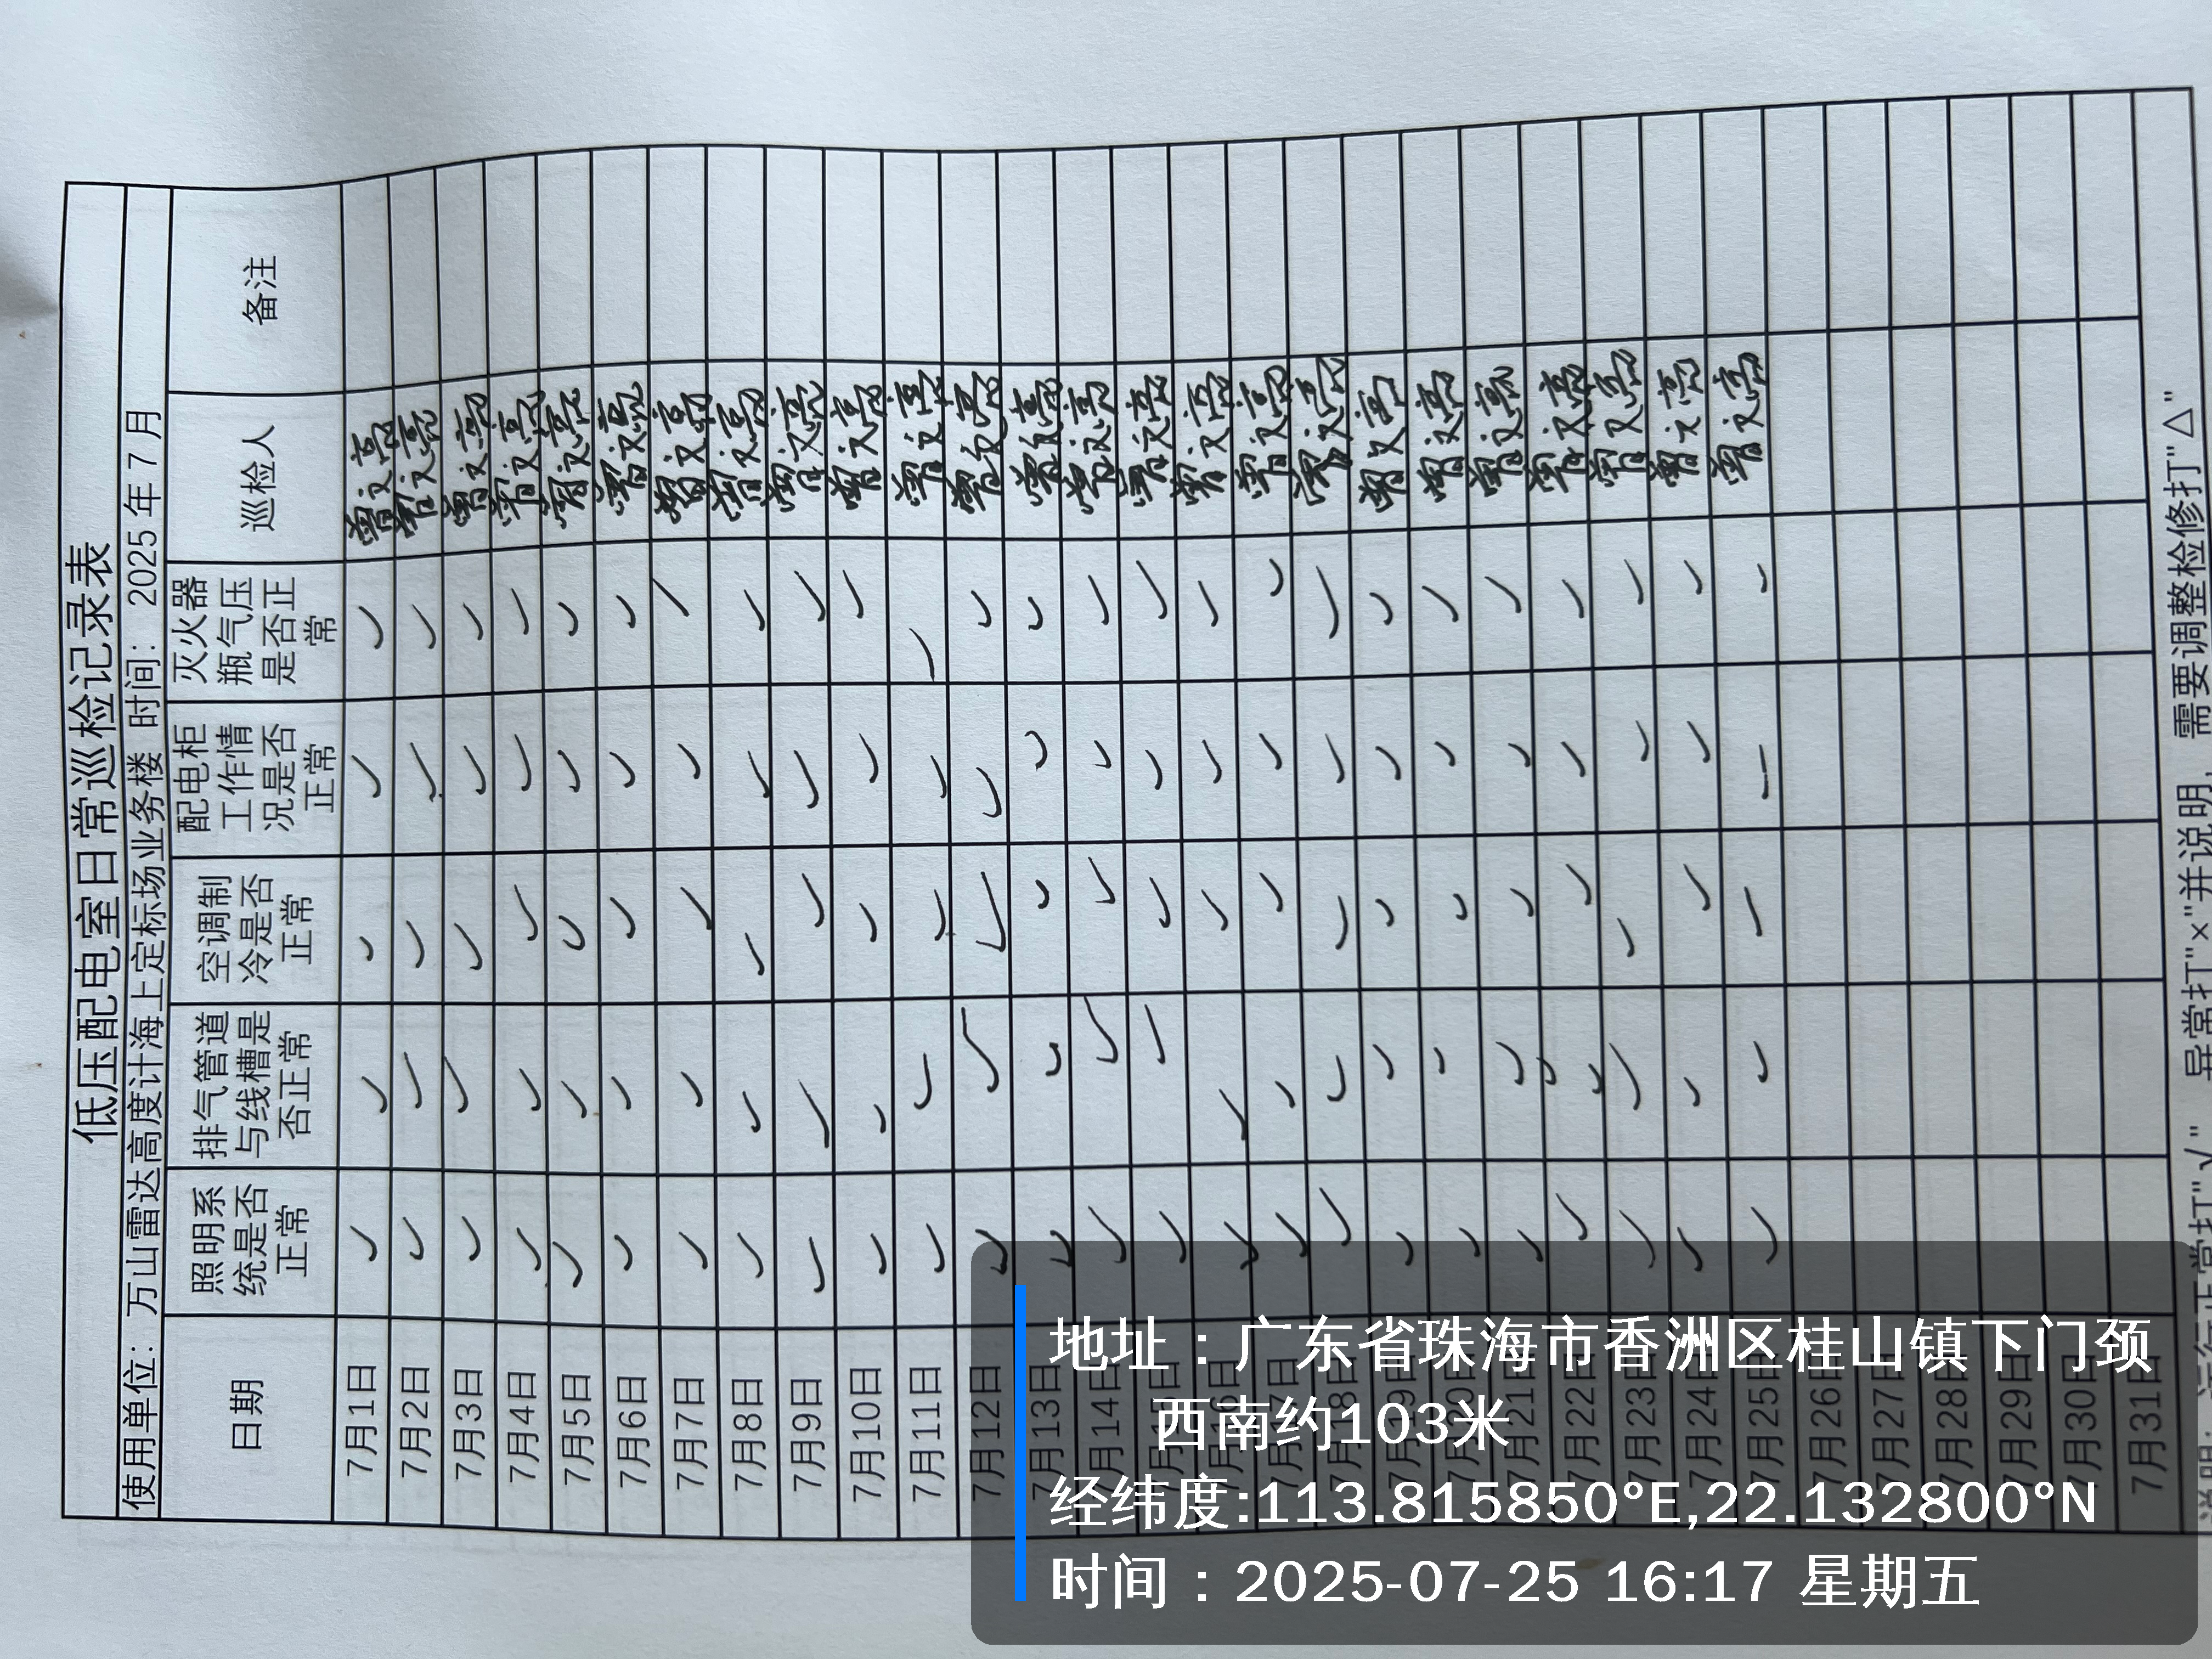 低压配电室日常巡检记录表
使用单位：万山雷达高度计海上定标场业务楼 时间：2025年7月
日期 照明系统是否正常 排气管道与线槽是否正常 空调制冷是否正常 配电柜工作情况是否正常 灭火器瓶气压是否正常 巡检人 备注
7月1日 ✓ ✓ ✓ ✓ ✓ 曾文亮
7月2日 ✓ ✓ ✓ ✓ ✓ 曾文亮
7月3日 ✓ ✓ ✓ ✓ ✓ 曾文亮
7月4日 ✓ ✓ ✓ ✓ ✓ 曾文亮
7月5日 ✓ ✓ ✓ ✓ ✓ 曾文亮
7月6日 ✓ ✓ ✓ ✓ ✓ 曾文亮
7月7日 ✓ ✓ ✓ ✓ ✓ 曾文亮
7月8日 ✓ ✓ ✓ ✓ ✓ 曾文亮
7月9日 ✓ ✓ ✓ ✓ ✓ 曾文亮
7月10日 ✓ ✓ ✓ ✓ ✓ 曾文亮
7月11日 ✓ ✓ ✓ ✓ ✓ 曾文亮
7月12日 ✓ ✓ ✓ ✓ ✓ 曾文亮
7月13日 ✓ ✓ ✓ ✓ ✓ 曾文亮
7月14日 ✓ ✓ ✓ ✓ ✓ 曾文亮
7月15日 ✓ ✓ ✓ ✓ ✓ 曾文亮
7月16日 ✓ ✓ ✓ ✓ ✓ 曾文亮
7月17日 ✓ ✓ ✓ ✓ ✓ 曾文亮
7月18日 ✓ ✓ ✓ ✓ ✓ 曾文亮
7月19日 ✓ ✓ ✓ ✓ ✓ 曾文亮
7月20日 ✓ ✓ ✓ ✓ ✓ 曾文亮
7月21日 ✓ ✓ ✓ ✓ ✓ 曾文亮
7月22日 ✓ ✓ ✓ ✓ ✓ 曾文亮
7月23日 ✓ ✓ ✓ ✓ ✓ 曾文亮
7月24日 ✓ ✓ ✓ ✓ ✓ 曾文亮
7月25日 ✓ ✓ ✓ ✓ ✓ 曾文亮
7月26日
7月27日
7月28日
7月29日
7月30日
7月31日
说明：运行正常打"√"，异常打"×"并说明，需要调整检修打"△"
地址：广东省珠海市香洲区桂山镇下门颈
西南约103米
经纬度:113.815850°E,22.132800°N
时间：2025-07-25 16:17 星期五